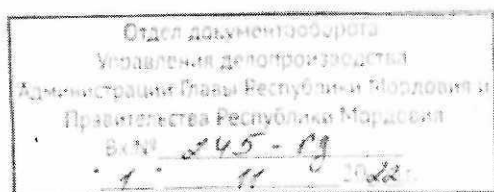 Отдел документооборота
Управления делопроизводства
Администрации Главы Республики Мордовия и
Правительства Республики Мордовия
Вх.№ 245-РД
"1" 11 2022 г.